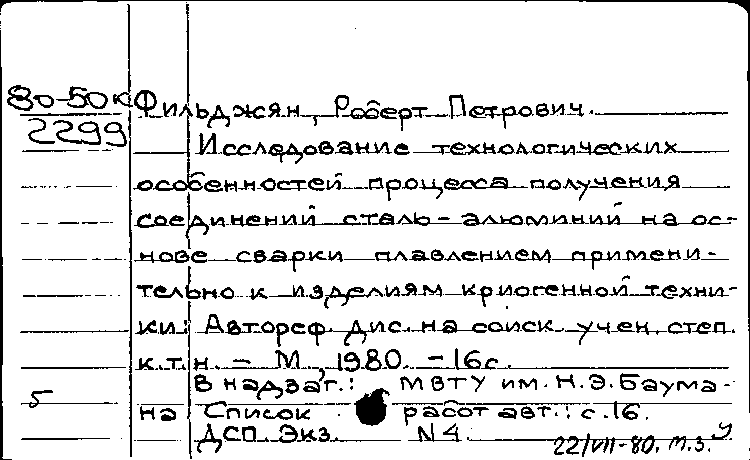 80-50к Фильджян, Роберт Петрович.
2299
Исследование технологических
особенностей процесса получения
соединений сталь-алюминий на ос-
нове сварки плавлением примени-
тельно к изделиям криогенной техни-
ки: Автореф. дис. на соиск. учен. степ.
к.т.н. - М., 1980. - 16с.
В надзаг.: МВТУ им. Н.Э.Баума-
5 на Список работ авт.: с.16.
ДСП. Экз. N4.
22/VII-80. т.з.